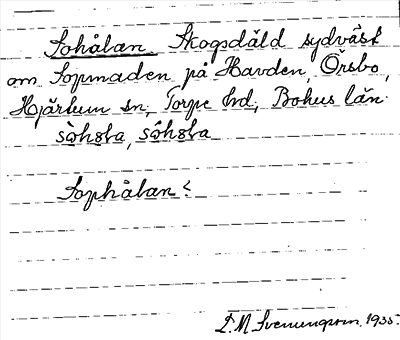 Sohålan. Skogsdäld sydväst
om Sopmaden på Havden, Örsbo,
Hjärtum sn, Torpe hd, Bohus län.
Sophålan?
D. M. Svenungsson. 1935.